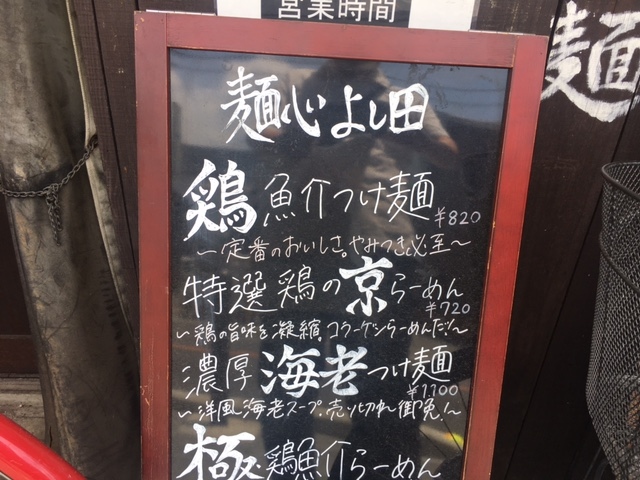 営業時間
麺
麺心よし田
鶏魚介つけ麺 ¥820
〜定番のおいしさ。やみつき必至〜
特選鶏の京らーめん ¥720
〜鶏の旨味を凝縮。コラーゲンらーめんだ!〜
濃厚海老つけ麺 ¥1,100
〜洋風海老スープ。売り切れ御免!〜
極鶏魚介らーめん